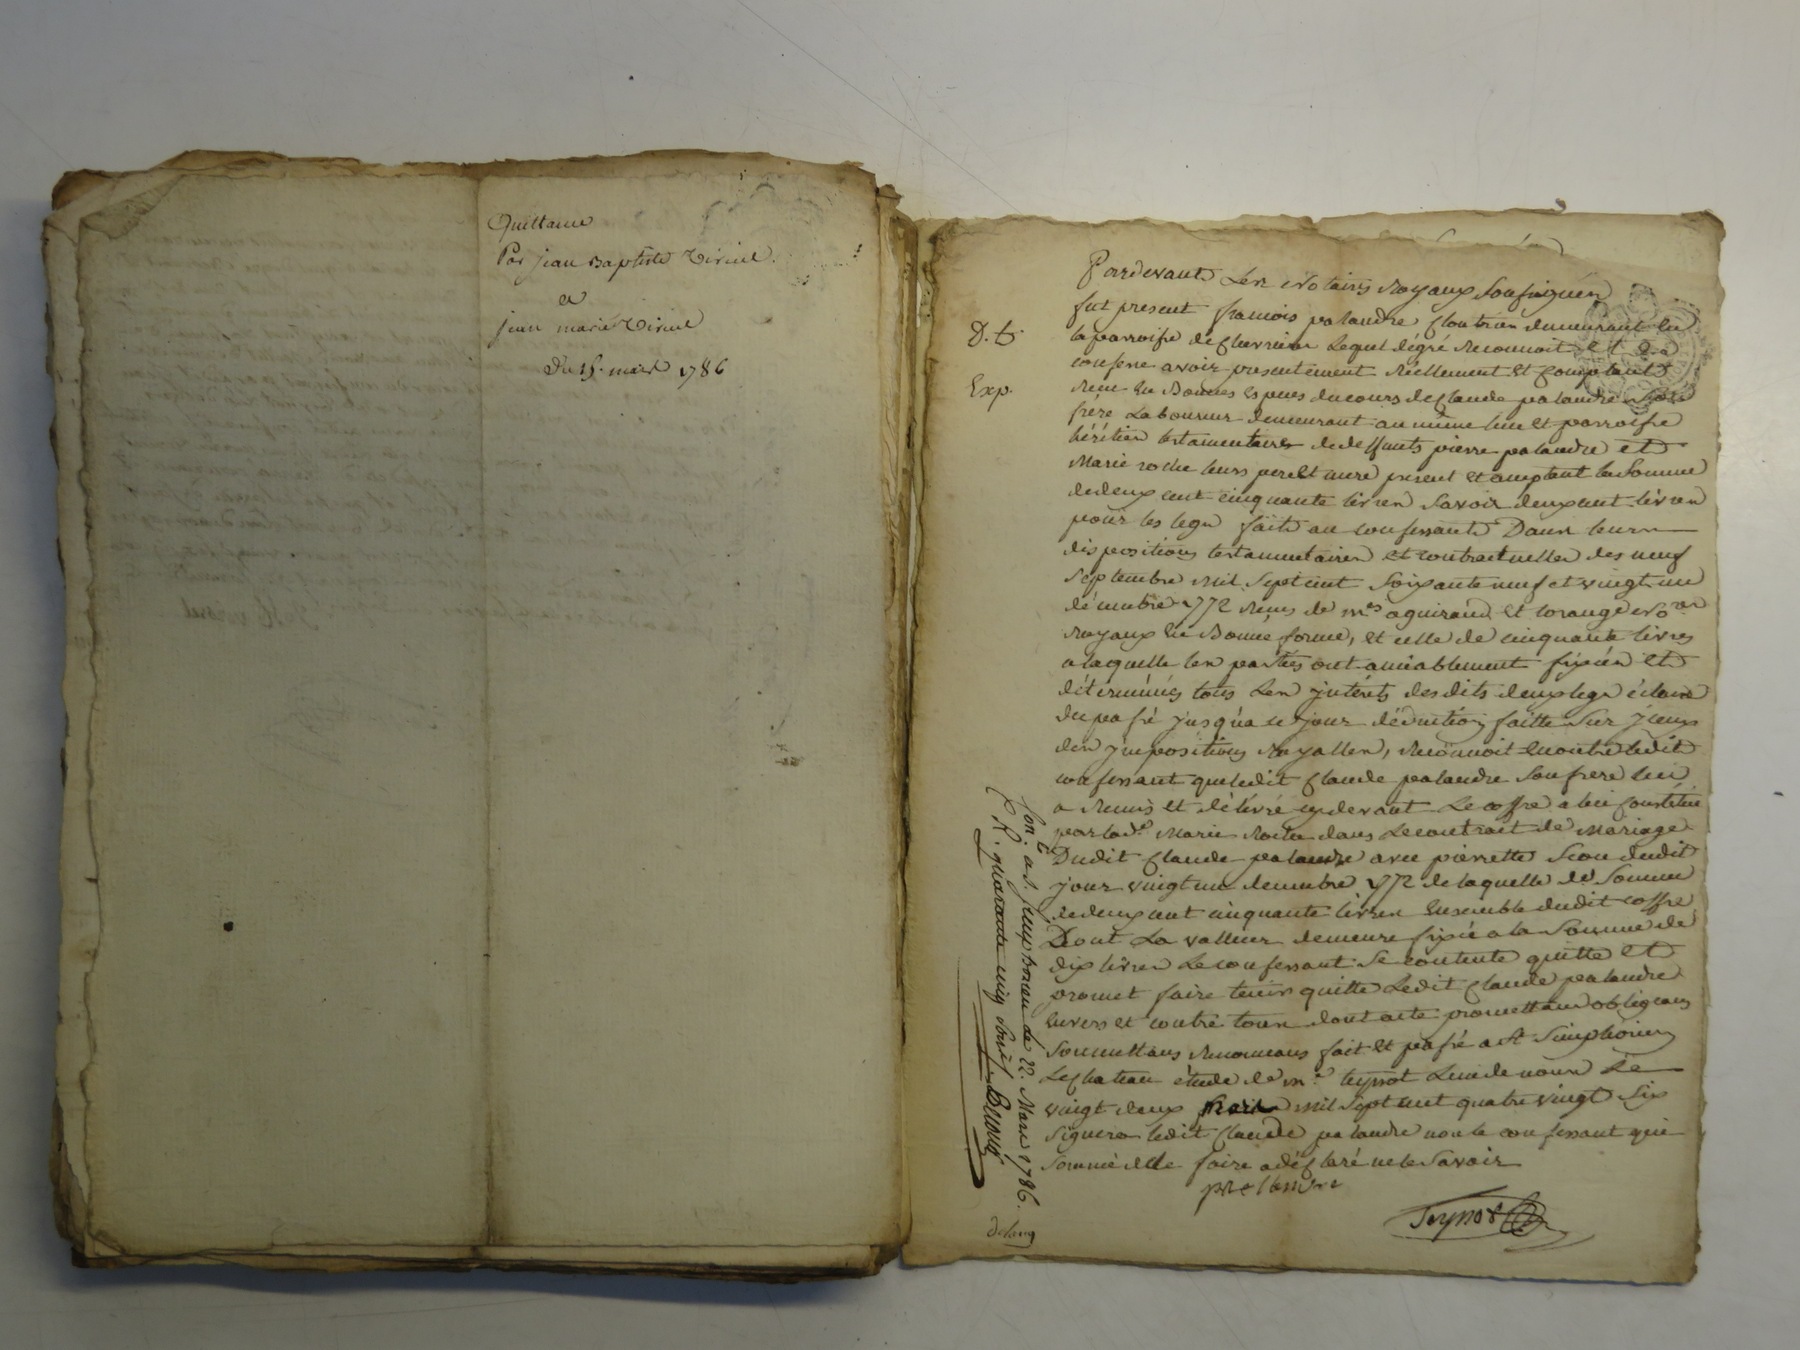 Quittance
Par jean Baptiste Viricel
a
jean marie Viricel
Du 15. mars 1786
Pardevant Les Notaires Royaux Soussignés
fut present francois palandre Cloutrier demeurant en
D. t.
la parroisse de Chevrieres Lequel de gré reconnoit et
confesse avoir presentement réellement et comptant
Exp.
reçu en Bonnes Especes du cours de Claude palandre son
frère Laboureur demeurant au même lieu et parroisse
héritier testamentaire de deffunts pierre palandre et
Marie roche leurs pere et mere présent et acceptant la Somme
de deux cent cinquante livres Savoir deux cent livres
pour les legs faits au confessant Dans leurs
dispositions testamentaires et contractuelles des neuf
Septembre mil Sept cent Soixante neuf et vingt un
décembre 1772 reçus de mes aguiraud et Corange no.res
Royaux en Bonne forme, et celle de cinquante livres
a laquelle les parties ont amiablement fixées et
déterminés tous Les jntérêts des dits deux legs
du passé jusqu'a ce jour déduction faitte Sur jceux
des jmpositions Royalles, reconnoit Encontre ledit
confessant que ledit Claude palandre Son frere lui
a remis et délivré cy devant Le coffre a lui Constitué
par lad.e Marie Roche dans Le contrait de Mariage
Dudit Claude palandre avec pierrette dudit
jour vingt un decembre 1772 de laquelle de Somme
de deux cent cinquante livres Ensemble dudit coffre
Dont La valleur demeure fixée a la Somme de
dix livres Le confessant Se contente quitte et
promet faire tenir quitte Ledit Claude palandre
Envers et contre tous dont acte promettans obligeans
Soumettans renonceans fait et passé a St Simphorien
Le Chateau étude de m.e teyssot L'un de nous Le
vingt deux mars mil Sept cent quatre vingt Six
Signera ledit Claude palandre non le confessant qui
Sommé de le faire a déclaré ne le Savoir
palandre
Teyssot
Con. a S. Simphorien le 22. Mars 1786.
R. quarante cinq Sous